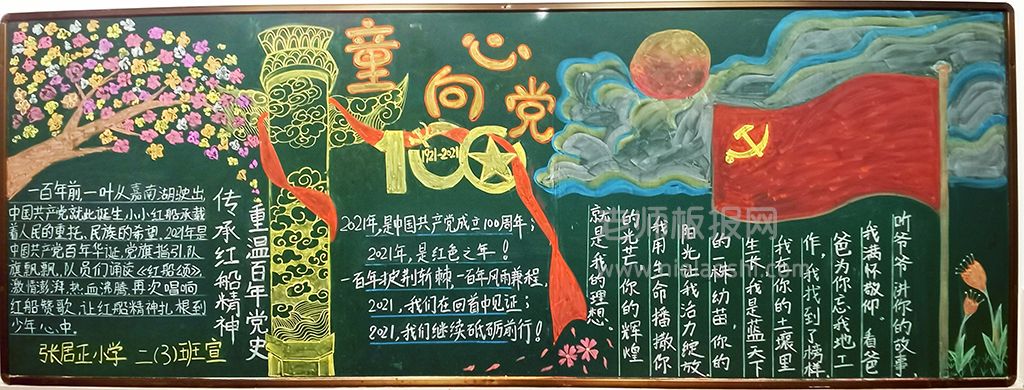 童
心
向
党
1921-2021
100
一百年前，一叶从嘉南湖驶出，
中国共产党就此诞生，小小红船承载
着人民的重托、民族的希望。2021年是
中国共产党百年华诞，党旗指引，队
旗飘飘，队员们诵读《红船颂》，
激情澎湃，热血沸腾，再次唱响
红船赞歌，让红船精神扎根到
少年心中。
张居正小学 二(3)班宣
重温百年党史
传承红船精神
2021年，是中国共产党成立100周年；
2021年，是红色之年！
一百年披荆斩棘，一百年风雨兼程，
2021，我们在回首中见证；
2021，我们继续砥砺前行！
听爷爷讲你的故事，
我满怀敬仰。看爸
爸为你忘我地工
作，我找到了榜样。
我在你的土壤里
生长，我是蓝天下
的一株幼苗，你的
阳光让我活力绽放，
我用生命播撒你
的光芒，你的辉煌
就是我的理想。
老师板报网